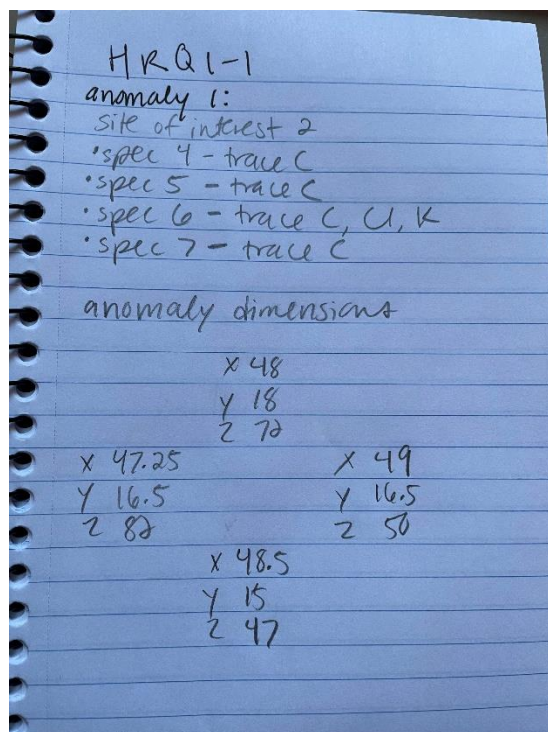 HRQ1-1
anomaly 1:
site of interest 2
•spec 4 - trace C
•spec 5 - trace C
•spec 6 - trace C, Cl, K
•spec 7 - trace C
anomaly dimensions
X 48
Y 18
Z 72
X 47.25
Y 16.5
Z 82
X 49
Y 16.5
Z 50
X 48.5
Y 15
Z 47